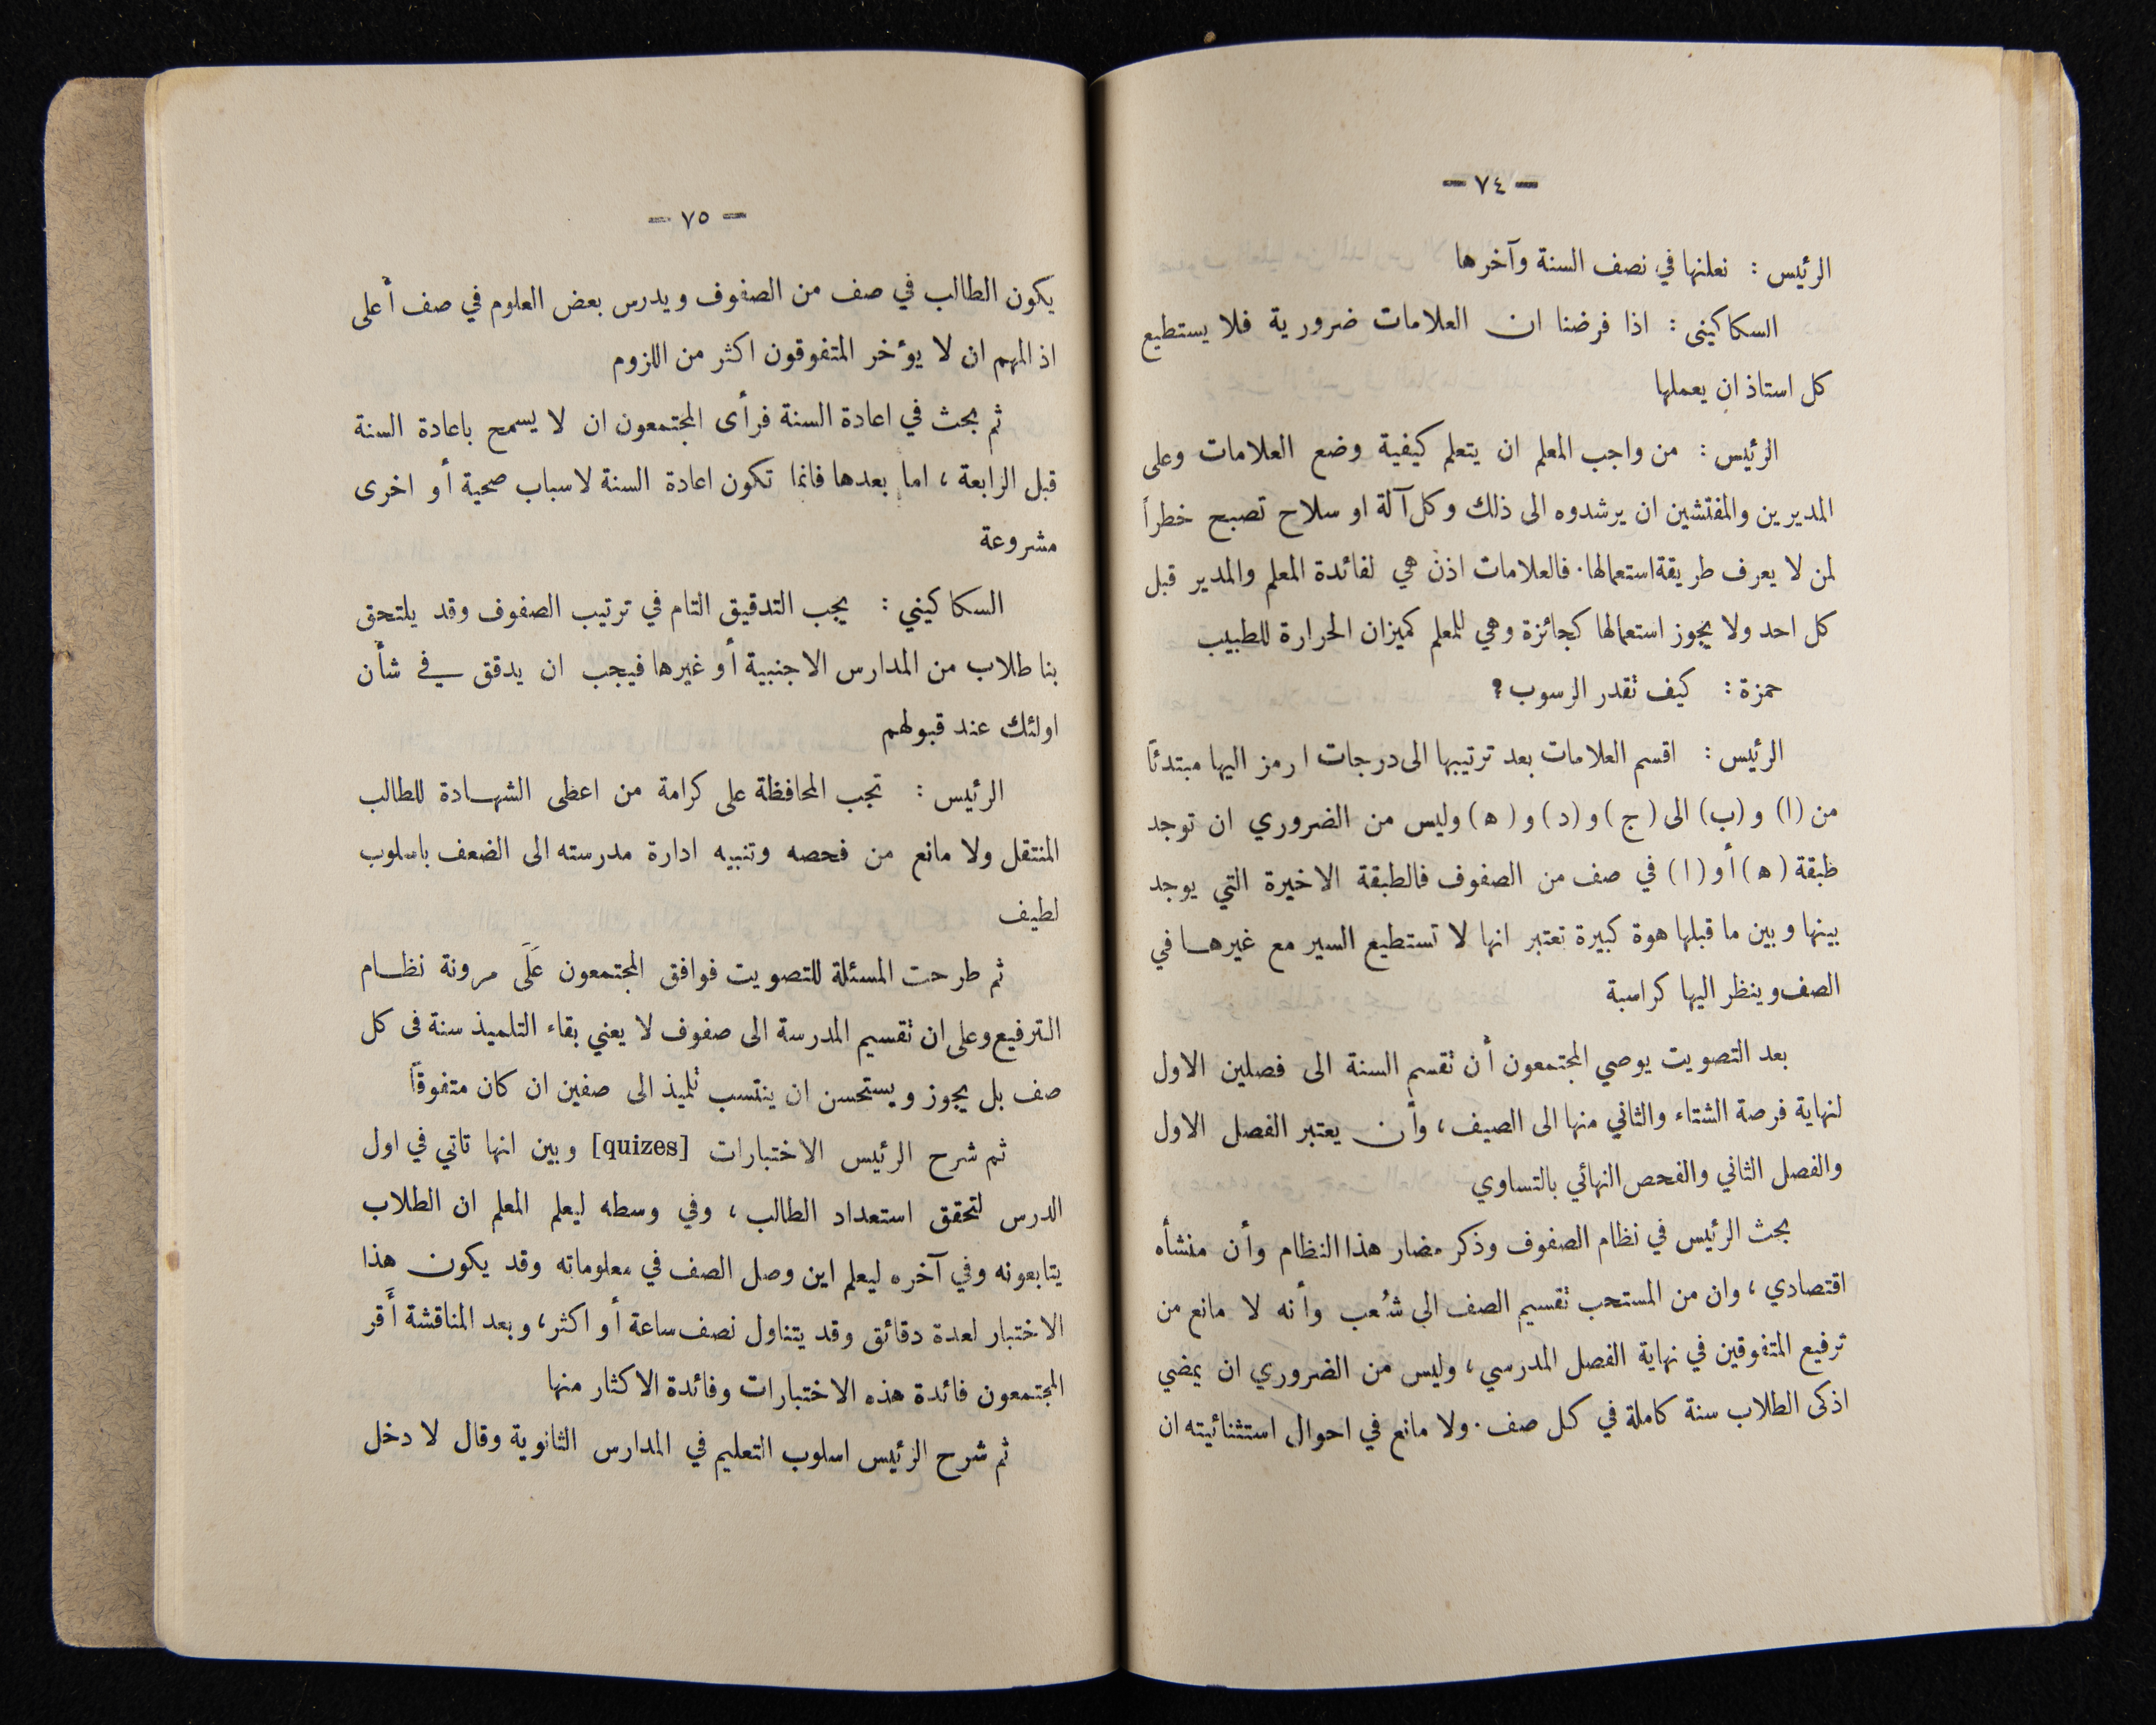 — ٧٤ —
الرئيس : نعلنها في نصف السنة وآخرها
السكاكيني : اذا فرضنا ان العلامات ضرورية فلا يستطيع
كل استاذ ان يعملها
الرئيس : من واجب المعلم ان يتعلم كيفية وضع العلامات وعلى
المديرين والمفتشين ان يرشدوه الى ذلك وكل آلة او سلاح تصبح خطراً
لمن لا يعرف طريقة استعمالها . فالعلامات اذن هي لفائدة المعلم والمدير قبل
كل احد ولا يجوز استعمالها كجائزة وهي للمعلم كميزان الحرارة للطبيب
حمزة : كيف تقدر الرسوب ؟
الرئيس : اقسم العلامات بعد ترتيبها الى درجات ارمز اليها مبتدئاً
من (ا) و (ب) الى (ج) و (د) و (ه) وليس من الضروري ان توجد
طبقة (ه) أو (ا) في صف من الصفوف فالطبقة الاخيرة التي يوجد
بينها وبين ما قبلها هوة كبيرة تعتبر انها لا تستطيع السير مع غيرها في
الصف وينظر اليها كراسبة
بعد التصويت يوصي المجتمعون أن تقسم السنة الى فصلين الاول
لنهاية فرصة الشتاء والثاني منها الى الصيف ، وأن يعتبر الفصل الاول
والفصل الثاني والفحص النهائي بالتساوي
بحث الرئيس في نظام الصفوف وذكر مضار هذا النظام وأن منشأه
اقتصادي ، وان من المستحب تقسيم الصف الى شُعب وأنه لا مانع من
ترفيع المتفوقين في نهاية الفصل المدرسي ، وليس من الضروري ان يمضي
اذكى الطلاب سنة كاملة في كل صف . ولا مانع في احوال استثنائيته ان
— ٧٥ —
يكون الطالب في صف من الصفوف ويدرس بعض العلوم في صف أعلى
اذ المهم ان لا يؤخر المتفوقون اكثر من اللزوم
ثم بحث في اعادة السنة فرأى المجتمعون ان لا يسمح باعادة السنة
قبل الرابعة ، اما بعدها فانما تكون اعادة السنة لاسباب صحية أو اخرى
مشروعة
السكاكيني : يجب التدقيق التام في ترتيب الصفوف وقد يلتحق
بنا طلاب من المدارس الاجنبية أو غيرها فيجب ان يدقق في شأن
اولئك عند قبولهم
الرئيس : تجب المحافظة على كرامة من اعطى الشهادة للطالب
المنتقل ولا مانع من فحصه وتنبيه ادارة مدرسته الى الضعف باسلوب
لطيف
ثم طرحت المسئلة للتصويت فوافق المجتمعون عَلَى مرونة نظام
الترفيع وعلى ان تقسيم المدرسة الى صفوف لا يعني بقاء التلميذ سنة في كل
صف بل يجوز ويستحسن ان ينتسب تلميذ الى صفين ان كان متفوقاً
ثم شرح الرئيس الاختبارات [quizes] وبين انها تاتي في اول
الدرس لتحقق استعداد الطالب ، وفي وسطه ليعلم المعلم ان الطلاب
يتابعونه وفي آخره ليعلم اين وصل الصف في معلوماته وقد يكون هذا
الاختبار لعدة دقائق وقد يتناول نصف ساعة أو اكثر ، وبعد المناقشة أَقر
المجتمعون فائدة هذه الاختبارات وفائدة الاكثار منها
ثم شرح الرئيس اسلوب التعليم في المدارس الثانوية وقال لا دخل